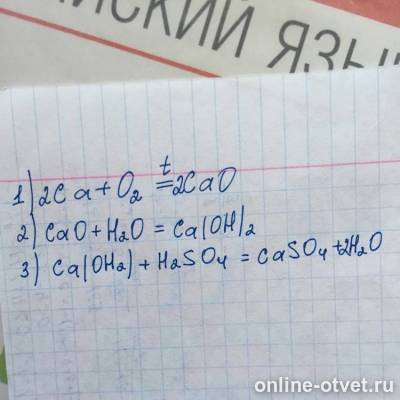 ИЙСКИЙ ЯЗЫ
1) 2Ca + O2 t= 2CaO
2) CaO + H2O = Ca(OH)2
3) Ca(OH2) + H2SO4 = CaSO4 + 2H2O
online-otvet.ru